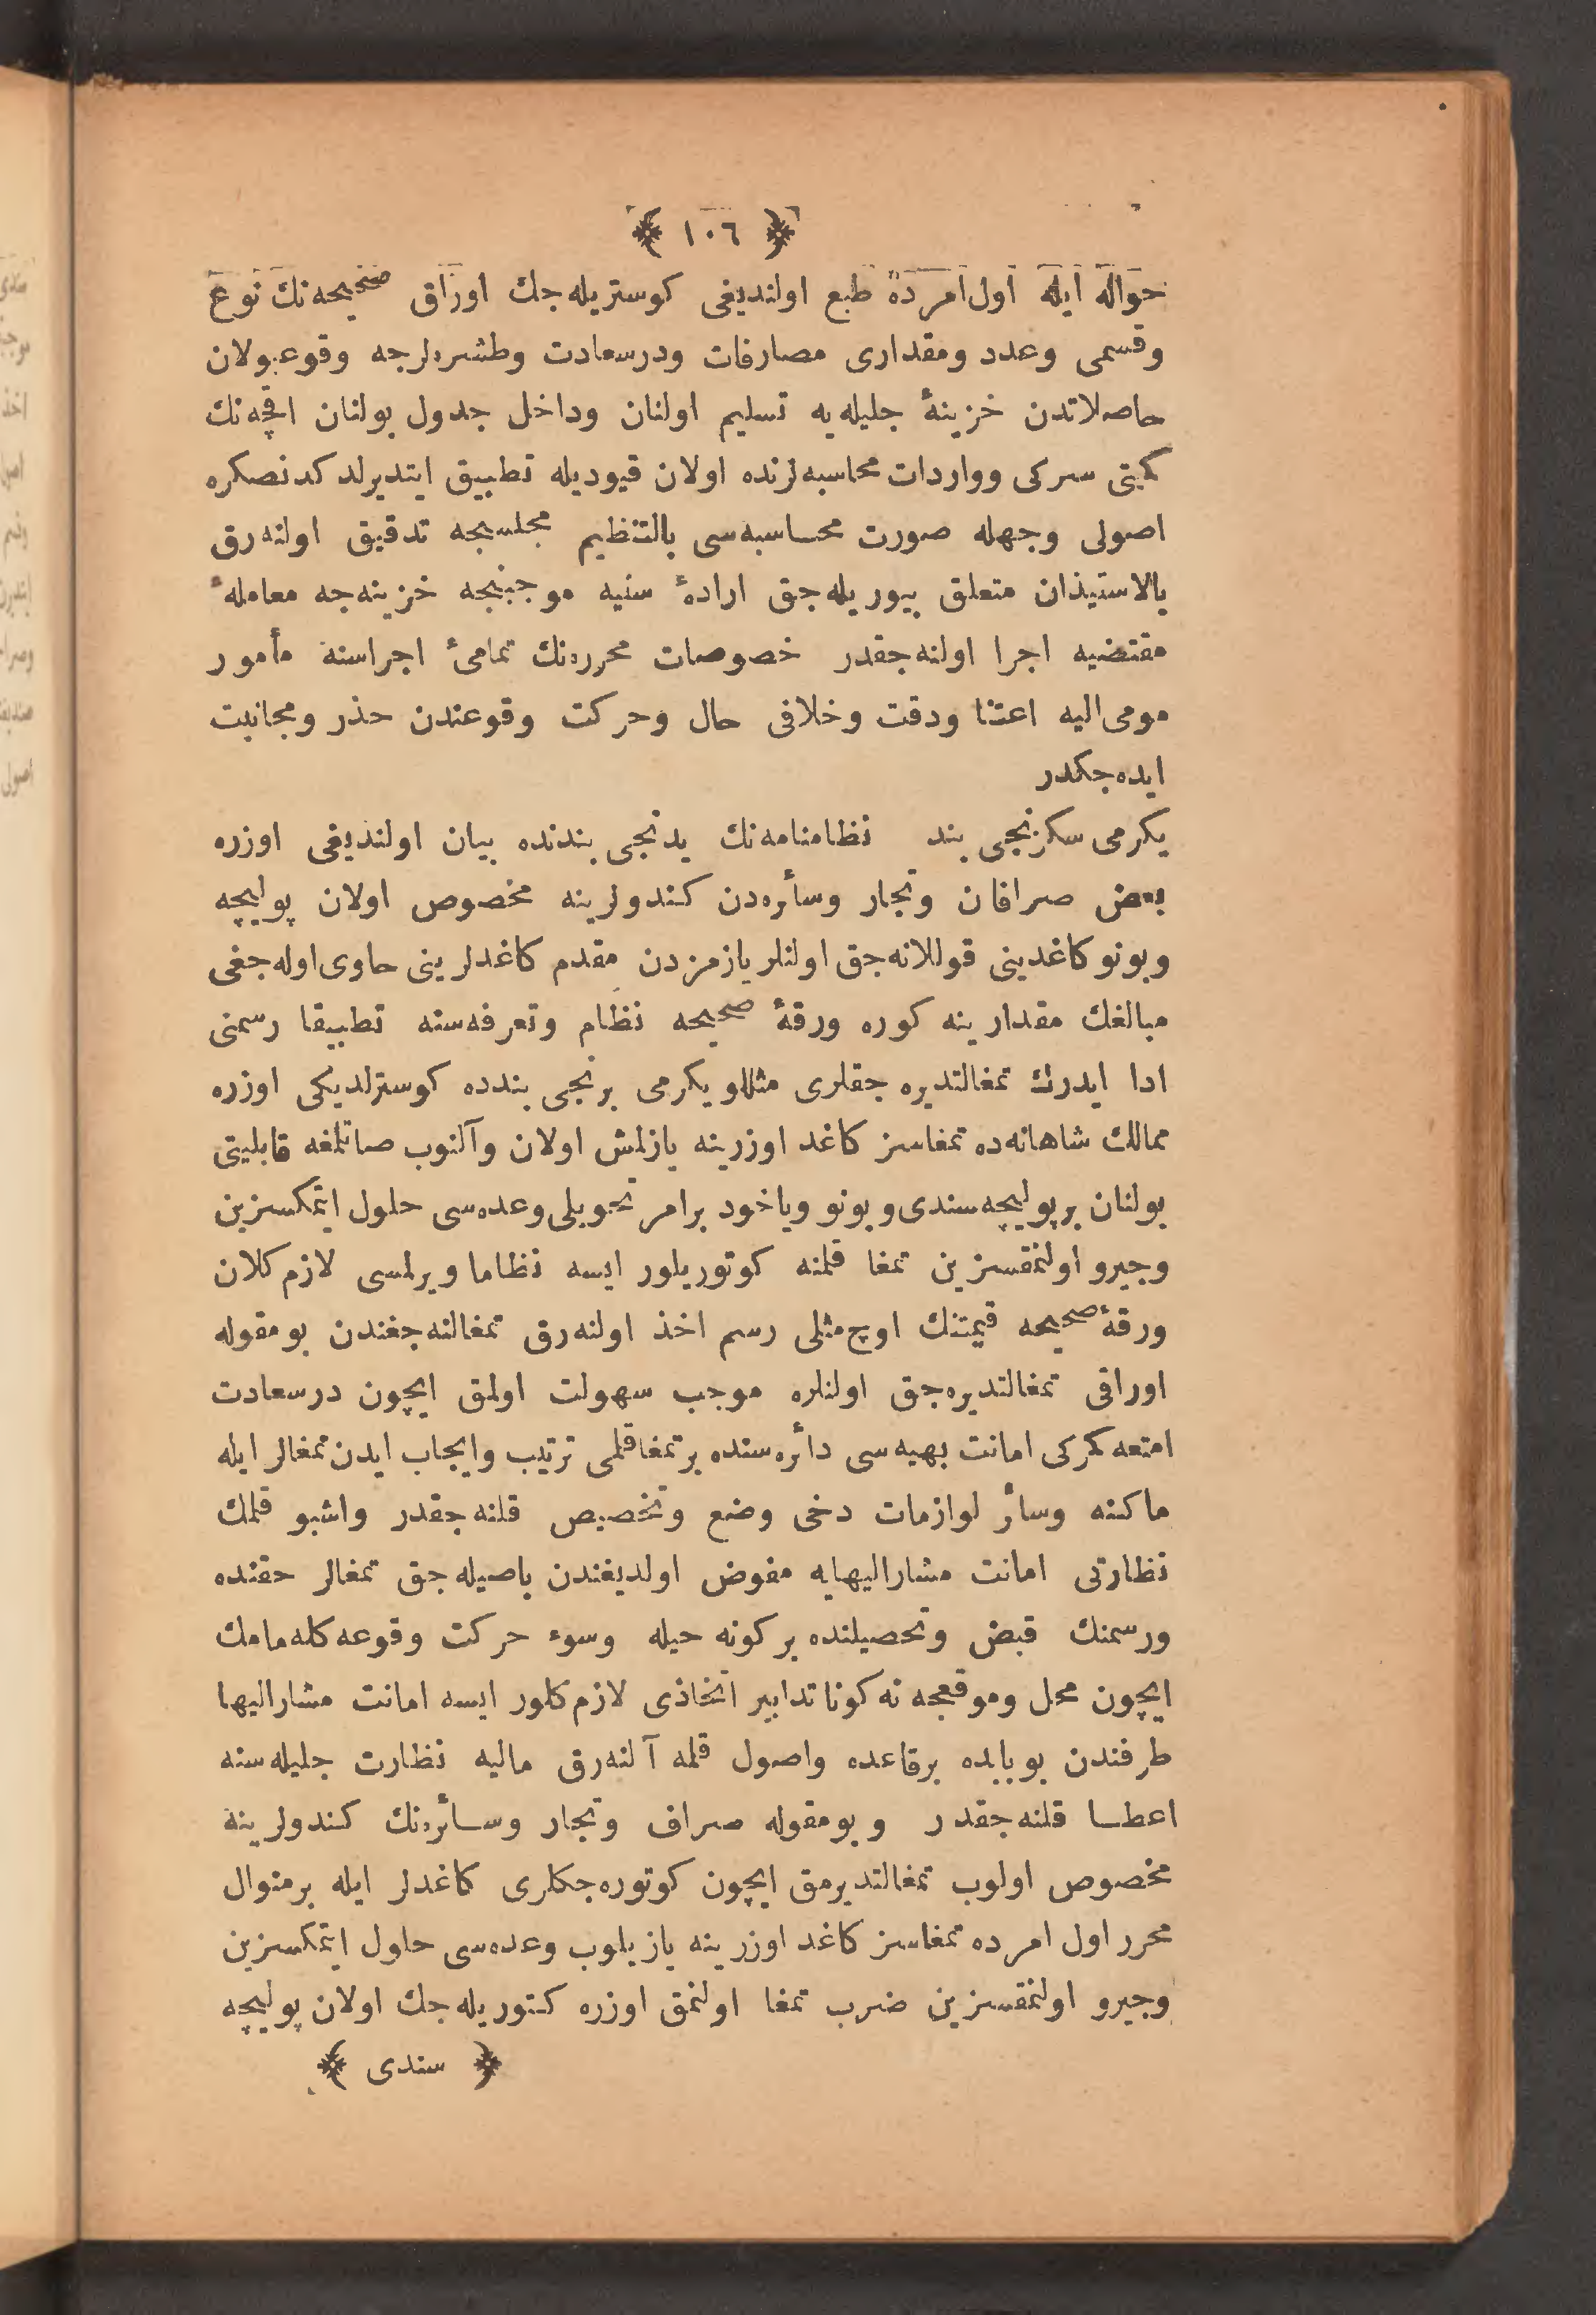 ﴿ ١٠٦ ﴾
حواله ایله اول امرده طبع اولندیغی كوستریله‌جك اوراق صحیحه‌نك نوع
وقسمی وعدد ومقداری مصارفات ودرسعادت وطشره‌لرجه وقوعبولان
حاصلاتدن خزینهٔ جلیله‌یه تسلیم اولنان وداخل جدول بولنان اقچه‌نك
كمیتی سركی وواردات محاسبه‌لرنده اولان قیودیله تطبیق ایتدیرلدكدنصكره
اصولی وجهله صورت محاسبه‌سی بالتنظیم مجلسجه تدقیق اولنه‌رق
بالاستیذان متعلق بیوریله‌جق ارادهٔ سنیه موجبنجه خزینه‌جه معاملهٔ
مقتضیه اجرا اولنه‌جقدر خصوصات محرره‌نك تمامیٔ اجراسنه مأمور
مومی‌الیه اعتنا ودقت وخلافی حال وحركت وقوعندن حذر ومجانبت
ایده‌جكدر
یكرمی سكزنجی بند نظامنامه‌نك یدنجی بندنده بیان اولندیغی اوزره
بعض صرافان وتجار وسائره‌دن كندولرینه مخصوص اولان پولیچه
وبونو كاغدینی قوللانه‌جق اولنلر یازمزدن مقدم كاغدلرینی حاوی اوله‌جغی
مبالغك مقدارینه كوره ورقهٔ صحیحه نظام وتعرفه‌سنه تطبیقا رسمنی
ادا ایدرك تمغالتدیره‌جقلری مثللو یكرمی برنجی بندده كوسترلدیكی اوزره
ممالك شاهانه‌ده تمغاسز كاغد اوزرینه یازلمش اولان وآلنوب صاتلمغه قابلیتی
بولنان بر پولیچه سندی وبونو ویاخود بر امر تحویلی وعده‌سی حلول ایتمكسزین
وجیرو اولنمقسزین تمغا قلمنه كوتوریلور ایسه نظاما ویرلمسی لازم كلان
ورقهٔ صحیحه قیمتنك اوچ مثلی رسم اخذ اولنه‌رق تمغالنه‌جغندن بو مقوله
اوراقی تمغالتدیره‌جق اولنلره موجب سهولت اولمق ایچون درسعادت
امتعه كمركی امانت بهیه‌سی دائره‌سنده بر تمغا قلمی ترتیب وایجاب ایدن تمغالر ایله
ماكنه وسائر لوازمات دخی وضع وتخصیص قلنه‌جقدر واشبو قلمك
نظارتی امانت مشارالیهایه مفوض اولدیغندن باصیله‌جق تمغالر حقنده
ورسمنك قبض وتحصیلنده بر كونه حیله وسوء حركت وقوعه كله‌مامك
ایچون محل وموقعجه نه كونا تدابیر اتخاذی لازم كلور ایسه امانت مشارالیها
طرفندن بو بابده بر قاعده واصول قلمه آلنه‌رق مالیه نظارت جلیله‌سنه
اعطا قلنه‌جقدر وبو مقوله صراف وتجار وسائره‌نك كندولرینه
مخصوص اولوب تمغالتدیرمق ایچون كوتوره‌جكلری كاغدلر ایله بر منوال
محرر اول امرده تمغاسز كاغد اوزرینه یازیلوب وعده‌سی حلول ایتمكسزین
وجیرو اولنمقسزین ضرب تمغا اولنمق اوزره كتوریله‌جك اولان پولیچه
﴿ سندی ﴾